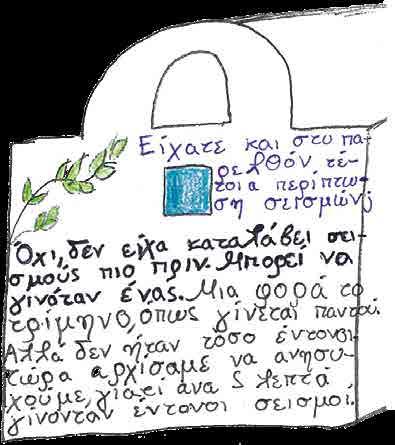 Είχατε και στο πα-
ρελθόν τέ-
τοια περίπτω-
ση σεισμών;
Όχι, δεν είχα καταλάβει σει-
σμούς πιο πριν. Μπορεί να
γινόταν ένας. Μια φορά το
τρίμηνο, όπως γίνεται παντού.
Αλλά δεν ήταν τόσο έντονοι.
τώρα αρχίσαμε να ανησυ-
χούμε, γιατί ανά 5 λεπτά
γινόνταν έντονοι σεισμοί.